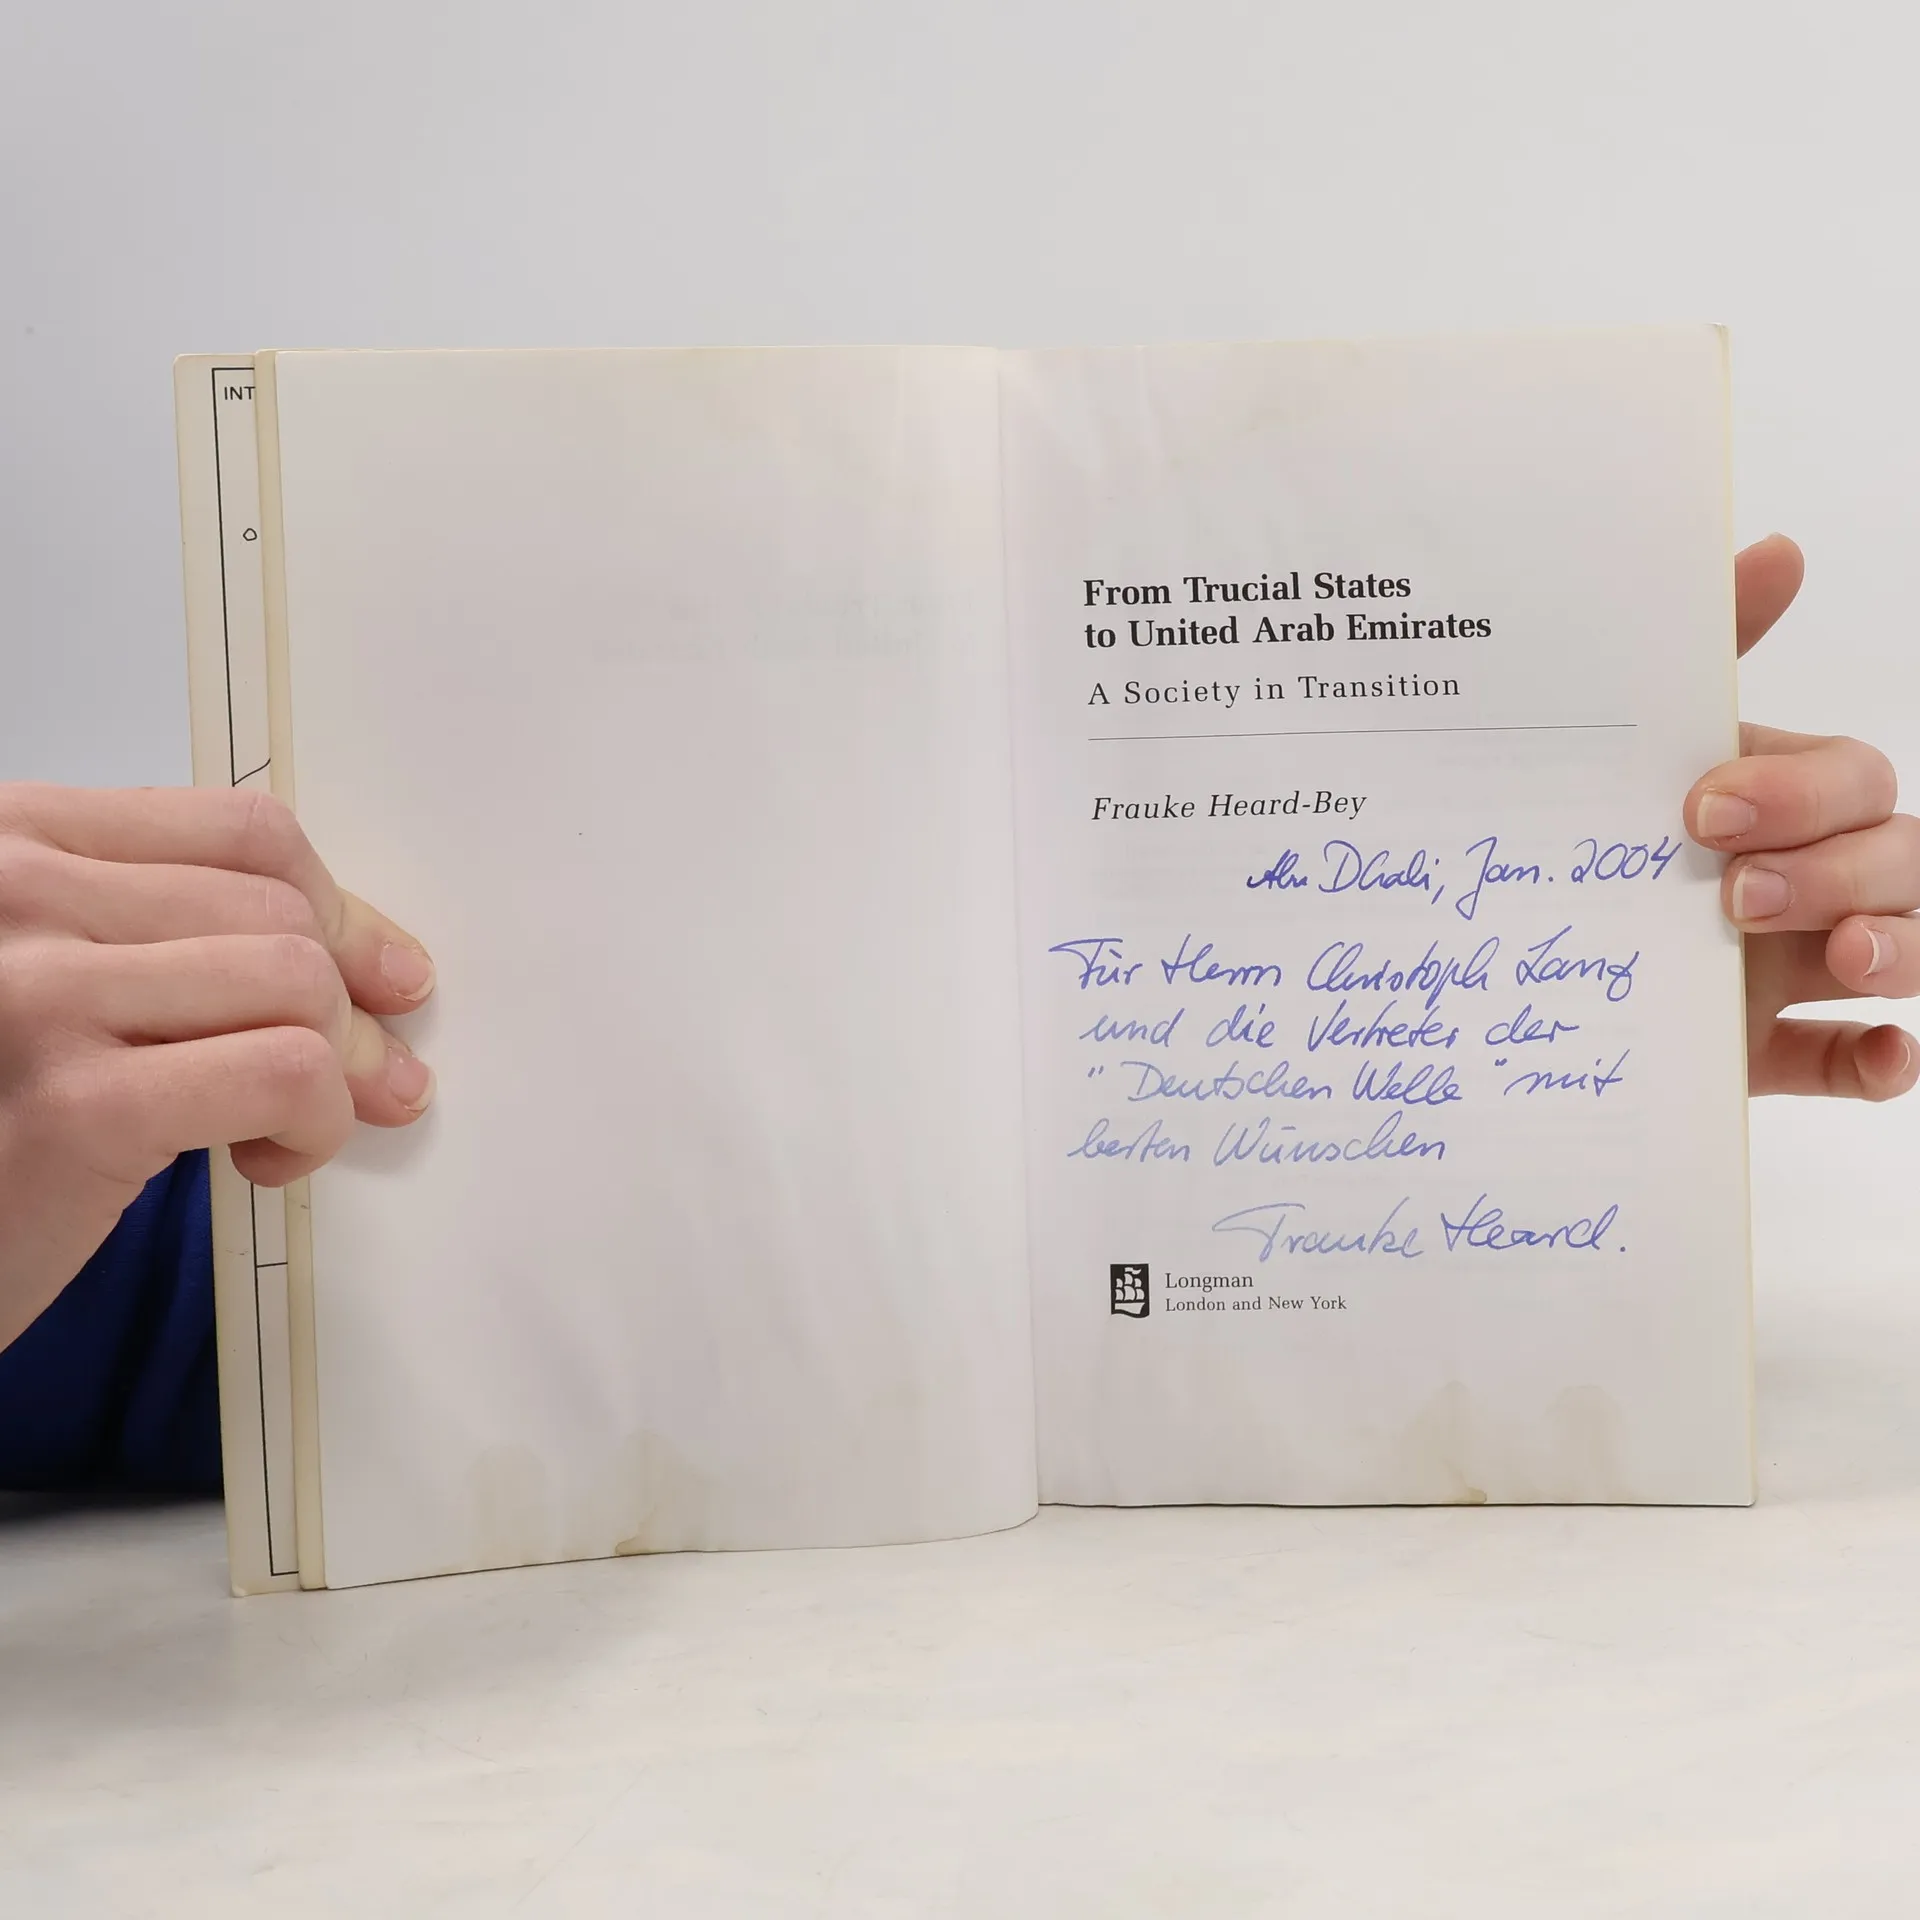 INT
From Trucial States
to United Arab Emirates
A Society in Transition
Frauke Heard-Bey
Abu Dhabi, Jan. 2004
Für Herrn Christoph Lanz
und die Vertreter der
"Deutschen Welle" mit
besten Wünschen
Frauke Heard.
Longman
London and New York